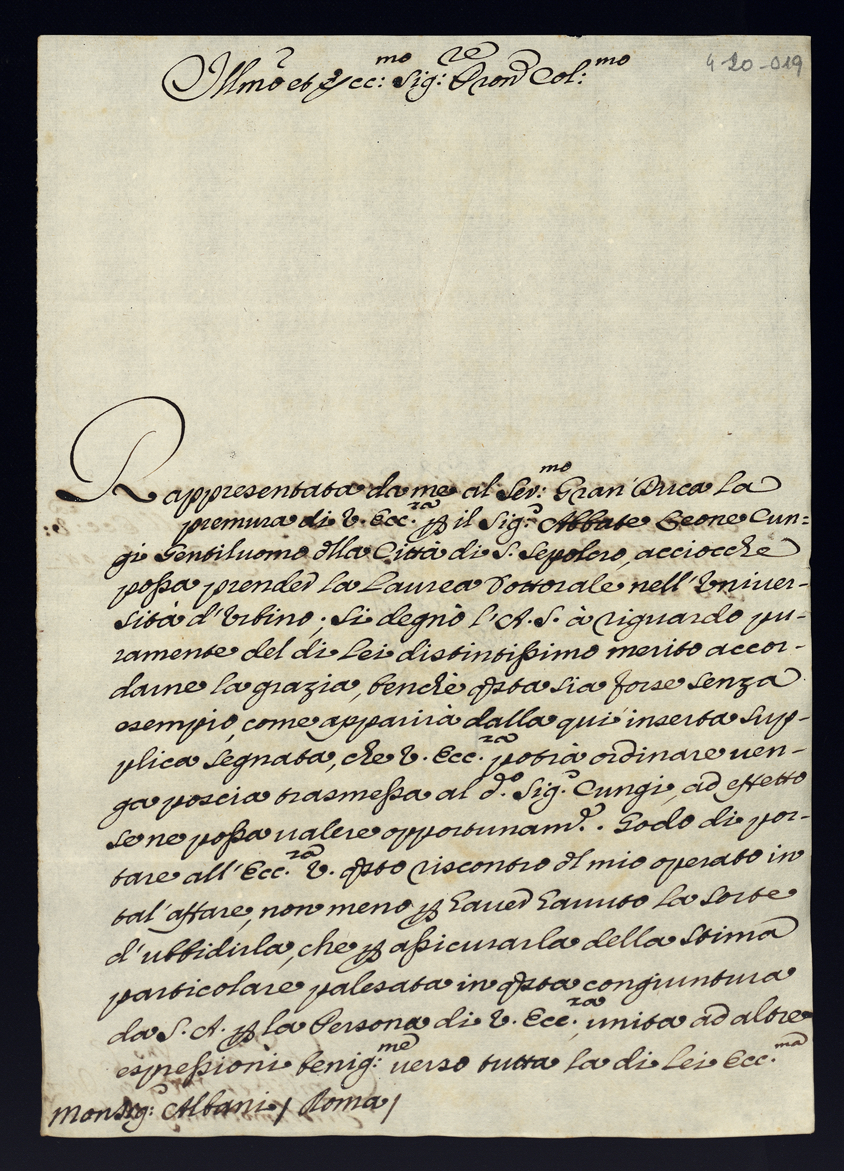 4-20-019
Illmo et Ecc:mo Sig:re Pron Col:mo
Rappresentata da me al Ser:mo Gran Duca la
premura di V. Ecc.za per il Sig.r Abbate Leone Cun=
gi Gentiluomo della Città di S. Sepolcro, acciocche
possa prender la Laurea Dottorale nell'Univer-
sità d'Urbino; si degnò l'A.S. à riguardo pu-
ramente del di Lei distintissimo merito accor-
darne la grazia, benche questa sia forse senza
esempio, come apparirà dalla quì inserta sup-
plica segnata, che V. Ecc.za potrà ordinare ven-
ga poscia trasmessa al d.o Sig.r Cungi, ad effetto
se ne possa valere opportunam.e. Godo di por-
tare all'Ecc.za V. questo riscontro del mio operato in
tal'affare, non meno per haver havuto la sorte
d'ubbidirla, che per assicurarla della stima
particolare palesata in questa congiuntura
da S. A. per la Persona di V. Ecc.za, unita ad altre
espressioni benig:me verso tutta la di Lei Ecc.ma
Monsig:r Albani / Roma /